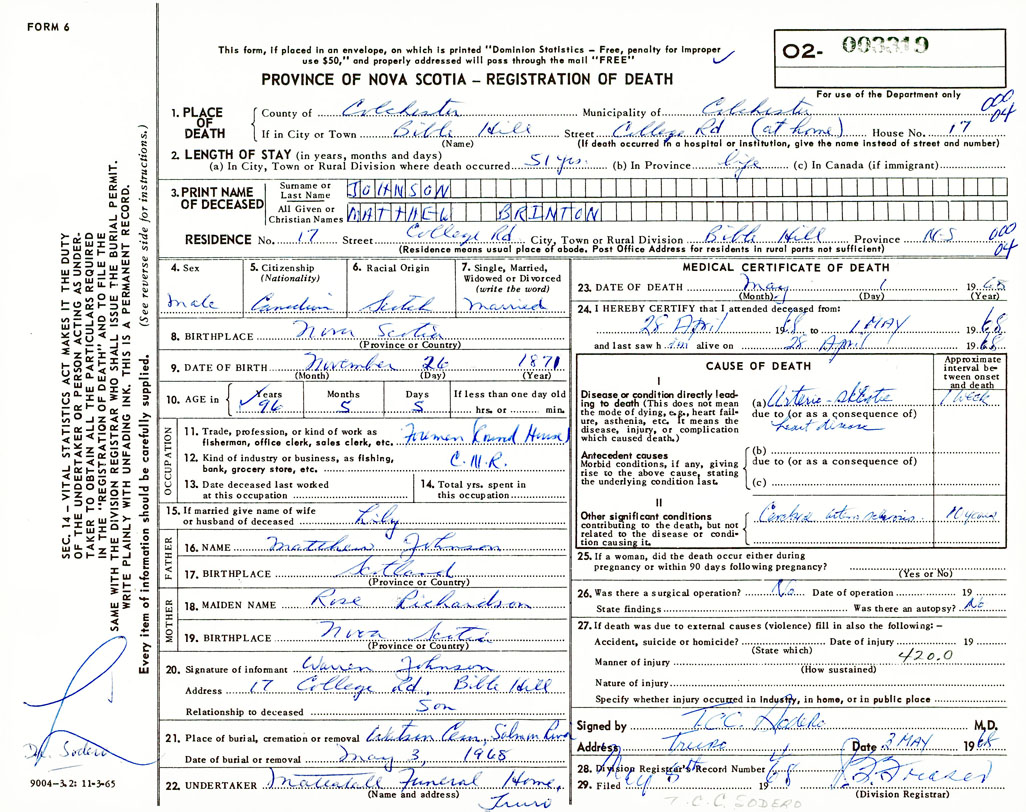 FORM 6
This form, if placed in an envelope, on which is printed "Dominion Statistics – Free, penalty for improper
use $50," and properly addressed will pass through the mail "FREE"
PROVINCE OF NOVA SCOTIA – REGISTRATION OF DEATH
02- 003319
For use of the Department only
000
04
1. PLACE OF DEATH
County of Colchester Municipality of Colchester
If in City or Town Bible Hill Street College Rd (at home) House No. 17
(Name) (If death occurred in a hospital or institution, give the name instead of street and number)
2. LENGTH OF STAY (in years, months and days)
(a) In City, Town or Rural Division where death occurred 51 yrs. (b) In Province life (c) In Canada (if immigrant)
3. PRINT NAME OF DECEASED
Surname or Last Name JOHNSON
All Given or Christian Names MATTHEW BRINTON
RESIDENCE No. 17 Street College Rd City, Town or Rural Division Bible Hill Province N-S
000
04
(Residence means usual place of abode. Post Office Address for residents in rural parts not sufficient)
4. Sex
Male
5. Citizenship
(Nationality)
Canadian
6. Racial Origin
Scotch
7. Single, Married,
Widowed or Divorced
(write the word)
Married
8. BIRTHPLACE Nova Scotia
(Province or Country)
9. DATE OF BIRTH November 26 1871
(Month) (Day) (Year)
10. AGE in
Years Months Days If less than one day old
96 5 5 hrs. or min.
OCCUPATION
11. Trade, profession, or kind of work as
fisherman, office clerk, sales clerk, etc. Foreman (Round House)
12. Kind of industry or business, as fishing,
bank, grocery store, etc. C.N.R.
13. Date deceased last worked
at this occupation
14. Total yrs. spent in
this occupation
15. If married give name of wife
or husband of deceased Lily
FATHER
16. NAME Matthew Johnson
17. BIRTHPLACE Scotland
(Province or Country)
MOTHER
18. MAIDEN NAME Rose Richardson
19. BIRTHPLACE Nova Scotia
(Province or Country)
20. Signature of informant Warren Johnson
Address 17 College Rd, Bible Hill
Relationship to deceased Son
21. Place of burial, cremation or removal Watson Cem, Salmon River
Date of burial or removal May 3, 1968
22. UNDERTAKER Mattatall Funeral Home,
(Name and address) Truro
MEDICAL CERTIFICATE OF DEATH
23. DATE OF DEATH May 1 1968
(Month) (Day) (Year)
24. I HEREBY CERTIFY that I attended deceased from:
28 April 1968 to 1 MAY 1968
and last saw him alive on 28 April 1968
CAUSE OF DEATH
Approximate
interval be-
tween onset
and death
I
Disease or condition directly lead-
ing to death (This does not mean
the mode of dying, e.g., heart fail-
ure, asthenia, etc. It means the
disease, injury, or complication
which caused death.)
(a) Arterio-sclerotic 1 week
due to (or as a consequence of)
heart disease
Antecedent causes
Morbid conditions, if any, giving
rise to the above cause, stating
the underlying condition last.
(b)
due to (or as a consequence of)
(c)
II
Other significant conditions
contributing to the death, but not
related to the disease or condi-
tion causing it.
Cerebral arterio sclerosis 10 years
25. If a woman, did the death occur either during
pregnancy or within 90 days following pregnancy?
(Yes or No)
26. Was there a surgical operation? No Date of operation 19
State findings Was there an autopsy? No
27. If death was due to external causes (violence) fill in also the following: –
Accident, suicide or homicide? Date of injury 19
(State which)
420.0
Manner of injury
(How sustained)
Nature of injury
Specify whether injury occurred in Industry, in home, or in public place
Signed by T.C.C. Sodero M.D.
Address Truro Date 3 MAY 1968
28. Division Registrar's Record Number
29. Filed May 1968
(Division Registrar)
T. C. C. SODERO
SEC. 14 – VITAL STATISTICS ACT MAKES IT THE DUTY
OF THE UNDERTAKER OR PERSON ACTING AS UNDER-
TAKER TO OBTAIN ALL THE PARTICULARS REQUIRED
IN THE "REGISTRATION OF DEATH" AND TO FILE THE
SAME WITH THE DIVISION REGISTRAR WHO SHALL ISSUE THE BURIAL PERMIT.
WRITE PLAINLY WITH UNFADING INK. THIS IS A PERMANENT RECORD.
Every item of information should be carefully supplied. (See reverse side for instructions.)
Dr. Sodero
9004–3.2: 11-3-65